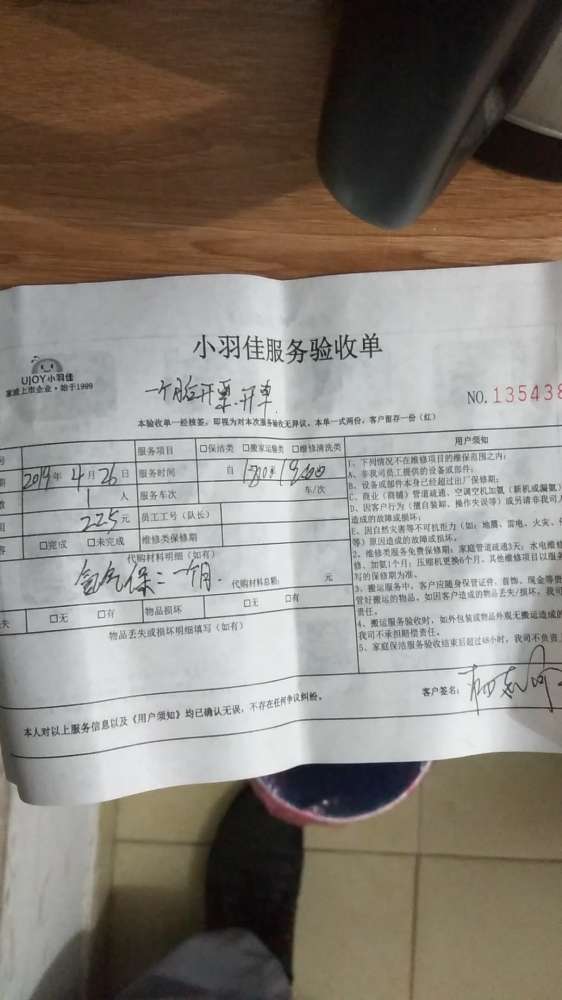 小羽佳服务验收单
UJOY小羽佳
家庭上市企业·始于1999
一个月后开票.开单
NO.135438
本验收单一经签签,即视为对本次服务验收无异议。本单一式两份,客户留存一份(红)
服务项目 □保洁类 □搬家运输类 □维修清洗类
2019年4月26日 服务时间 自
1人 服务车次 车/次
225元 员工工号(队长)
□完成 □未完成 维修类保修期
代购材料明细(如有)
氨气保:一个月.
代购材料总额: 元
□无 □有 物品损坏 □无 □有
物品丢失或损坏明细填写(如有)
本人对以上服务信息以及《用户须知》均已确认无误,不存在任何争议纠纷。
用户须知
1、下列情况不在维修项目的维保范围之内:
A、非我司员工提供的设备或部件;
B、设备或部件本身已经超过出厂保修期;
C、商业(商铺)管道疏通,空调空机加氨(新机或漏氨)
D、因客户行为(擅自装卸、操作失误等)或另请非我司人
造成的故障或损坏;
E、因自然灾害等不可抗拒力(如:地震、雷电、火灾、
等)原因造成的故障或损坏。
2、维修类服务免费保修期:家庭管道疏通3天;水电维
修、加氨1个月;压缩机更换6个月,其他维修项目以服务
写的保修期为准。
3、搬运服务中,客户应随身保管证件、首饰、现金等贵
管好搬运的物品。如因客户造成的物品丢失/损坏,我司
责任。
4、搬运服务验收时,如外包装或物品外观无搬运造成的
我司不承担赔偿责任。
5、家庭保洁服务验收结束后超过48小时,我司不负责
客户签名: